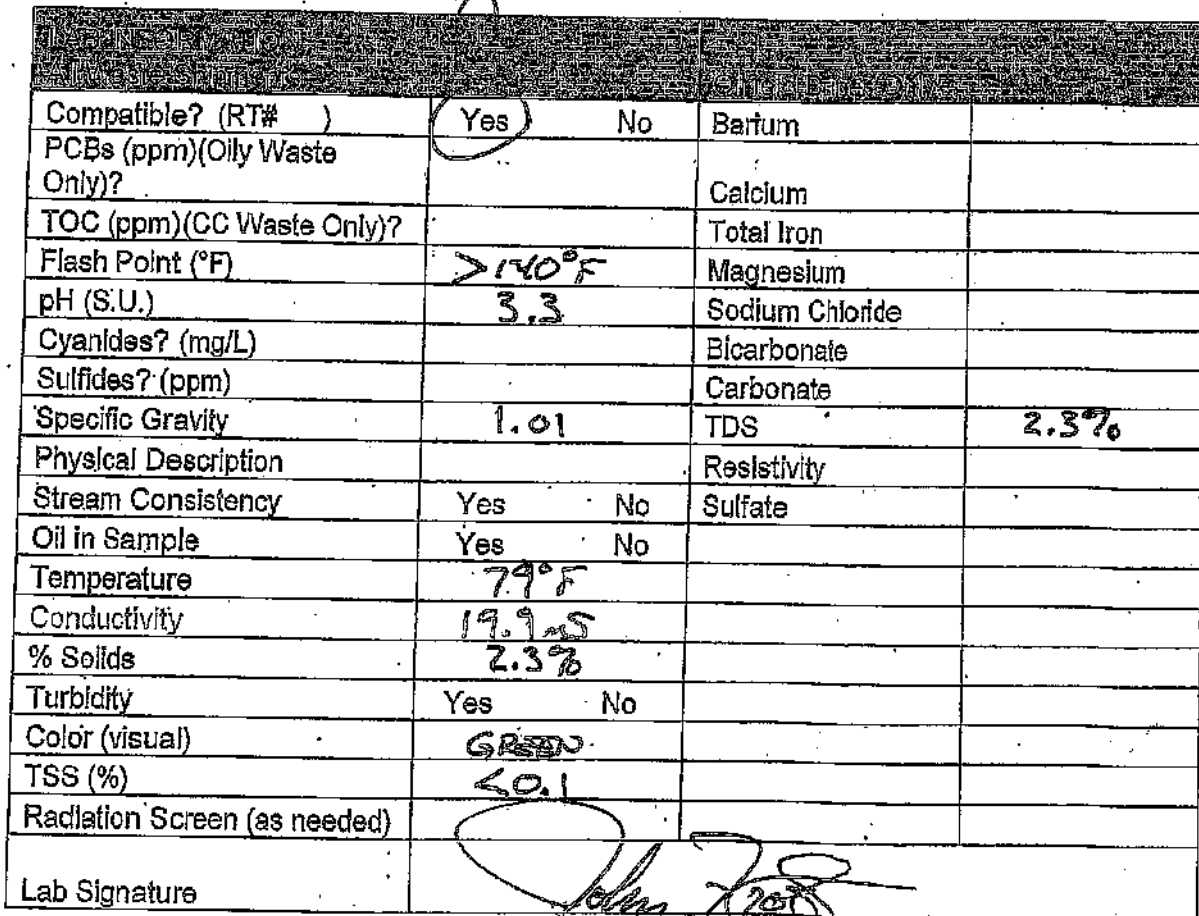 Compatible? (RT# ) Yes No Barium
PCBs (ppm)(Oily Waste
Only)? Calcium
TOC (ppm)(CC Waste Only)? Total Iron
Flash Point (°F) >140°F Magnesium
pH (S.U.) 3.3 Sodium Chloride
Cyanides? (mg/L) Bicarbonate
Sulfides? (ppm) Carbonate
Specific Gravity 1.01 TDS 2.3%
Physical Description Resistivity
Stream Consistency Yes No Sulfate
Oil in Sample Yes No
Temperature 79°F
Conductivity 19.9 mS
% Solids 2.3%
Turbidity Yes No
Color (visual) GREEN
TSS (%) <0.1
Radiation Screen (as needed)
Lab Signature John